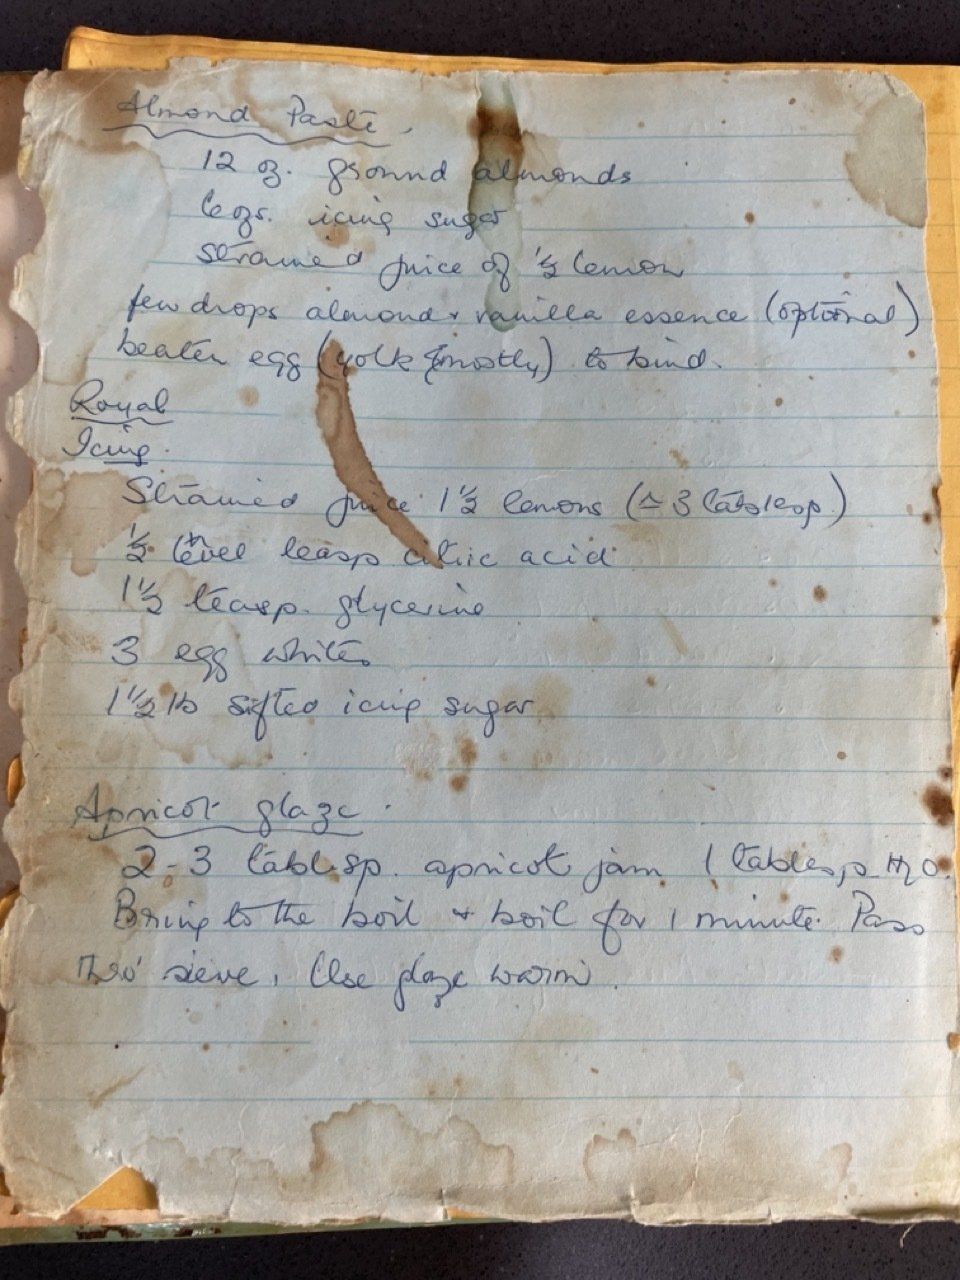 Almond Paste.
12 oz. ground almonds
6 ozs. icing sugar
strained juice of 1/2 lemon
few drops almond + vanilla essence (optional)
beaten egg (yolk mostly) to bind.
Royal
Icing.
Strained juice 1 1/2 lemons (≏ 3 tablesp.)
1/2 level teasp citric acid
1 1/2 teasp. glycerine
3 egg whites
1 1/2 lb sifted icing sugar
Apricot glaze.
2-3 tablsp. apricot jam 1 tablesp H2O.
Bring to the boil + boil for 1 minute. Pass
thro' sieve. Use glaze warm.